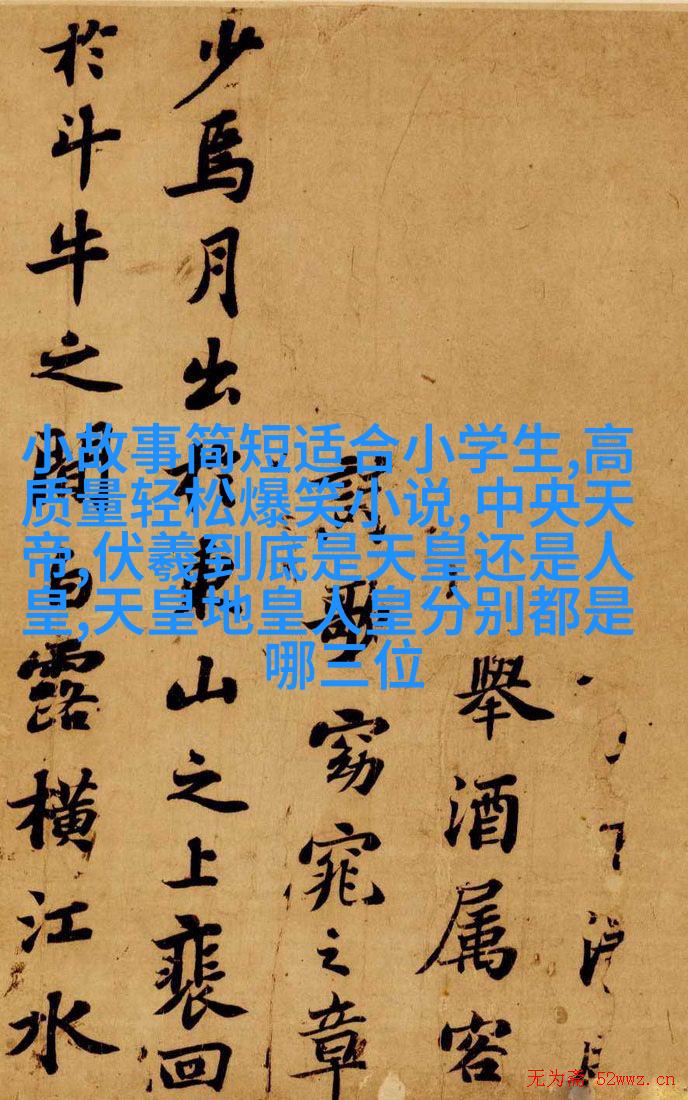 舉酒属客
歌窈窕之章
少焉月出於東山之上裵回
於斗牛之間白露橫江水
小故事简短适合小学生,高
质量轻松爆笑小说,中央天
帝,伏羲到底是天皇还是人
皇,天皇地皇人皇分别都是
哪三位
无为斋 52wwz.cn